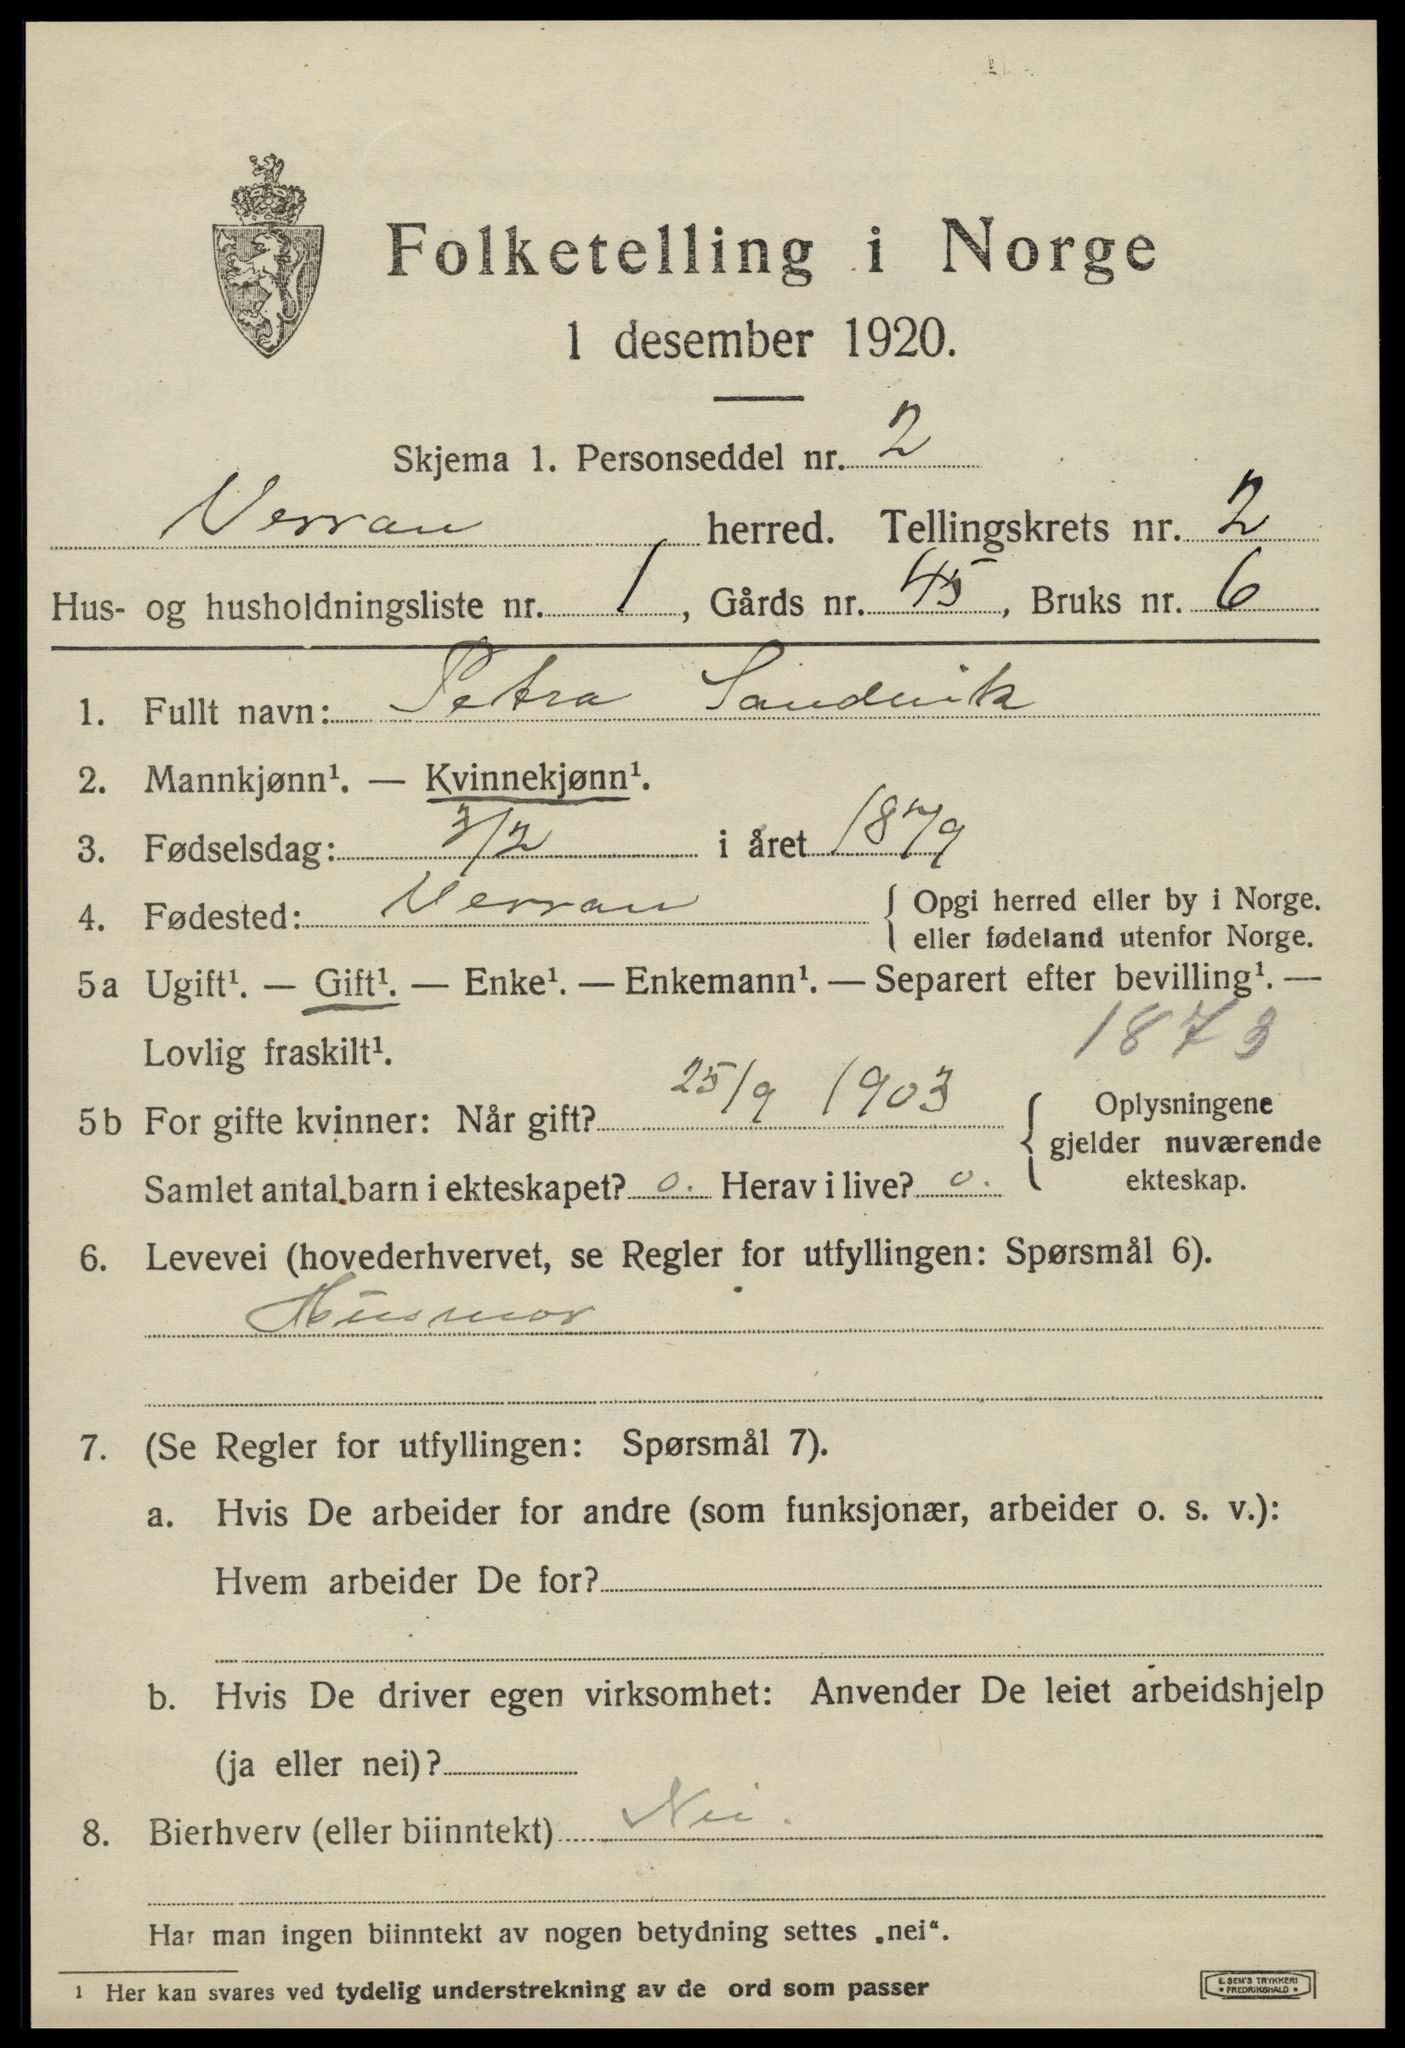 Folketelling i Norge
1 desember 1920.
Skjema 1. Personseddel nr. 2
Verran herred. Tellingskrets nr. 2
Hus- og husholdningsliste nr. 1, Gårds nr. 45, Bruks nr. 6
1. Fullt navn: Petra Sandvik
2. Mannkjønn¹. — Kvinnekjønn¹.
3. Fødselsdag: 3/2 i året 1879
4. Fødested: Verran { Opgi herred eller by i Norge.
eller fødeland utenfor Norge.
5a Ugift¹. — Gift¹. — Enke¹. — Enkemann¹. — Separert efter bevilling¹. —
Lovlig fraskilt¹. 1873
5b For gifte kvinner: Når gift? 25/9 1903 { Oplysningene
gjelder nuværende
Samlet antal barn i ekteskapet? 0. Herav i live? 0. ekteskap.
6. Levevei (hovederhvervet, se Regler for utfyllingen: Spørsmål 6).
Husmor
7. (Se Regler for utfyllingen: Spørsmål 7).
a. Hvis De arbeider for andre (som funksjonær, arbeider o. s. v.):
Hvem arbeider De for?
b. Hvis De driver egen virksomhet: Anvender De leiet arbeidshjelp
(ja eller nei)?
8. Bierhverv (eller biinntekt) Nei.
Har man ingen biinntekt av nogen betydning settes „nei“.
1 Her kan svares ved tydelig understrekning av de ord som passer
E. SEM'S TRYKKERI
• FREDRIKSHALD •